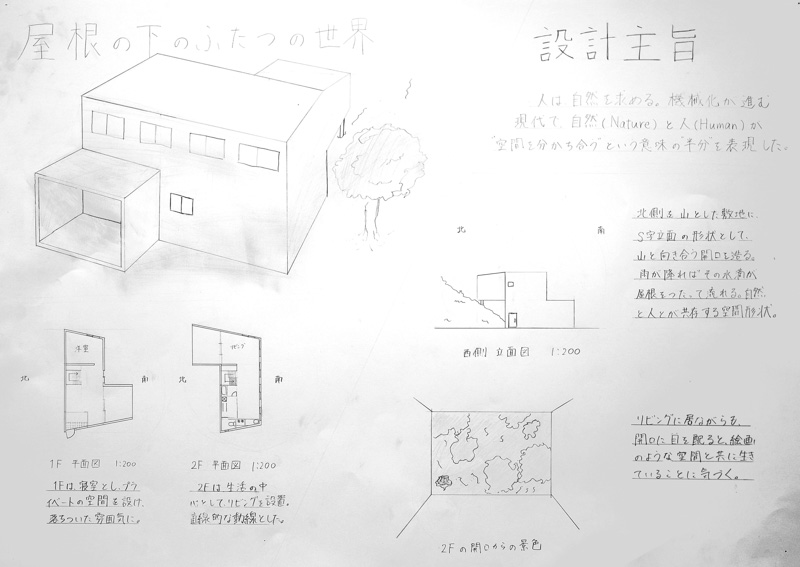 屋根の下のふたつの世界
設計主旨
人は自然を求める。機械化が進む
現代で、自然(Nature)と人(Human)が
"空間を分かち合う"という意味の"半分"を表現した。
北側を山とした敷地に
S字立面の形状として、
山と向き合う開口を造る。
雨が降ればその水滴が
屋根をつたって流れる。自然
と人とが共存する空間形状。
北
南
西側 立面図 1:200
洋室
北
南
1F 平面図 1:200
1Fは、寝室とし、プラ
イベートの空間を設け、
落ちついた雰囲気に。
リビング
北
南
2F 平面図 1:200
2Fは生活の中
心としてリビングを設置。
的な動線とした。
リビングに居ながらも、
開口に目を配ると、絵画
のような空間と共に生き
ていることに気づく。
2Fの開口からの景色